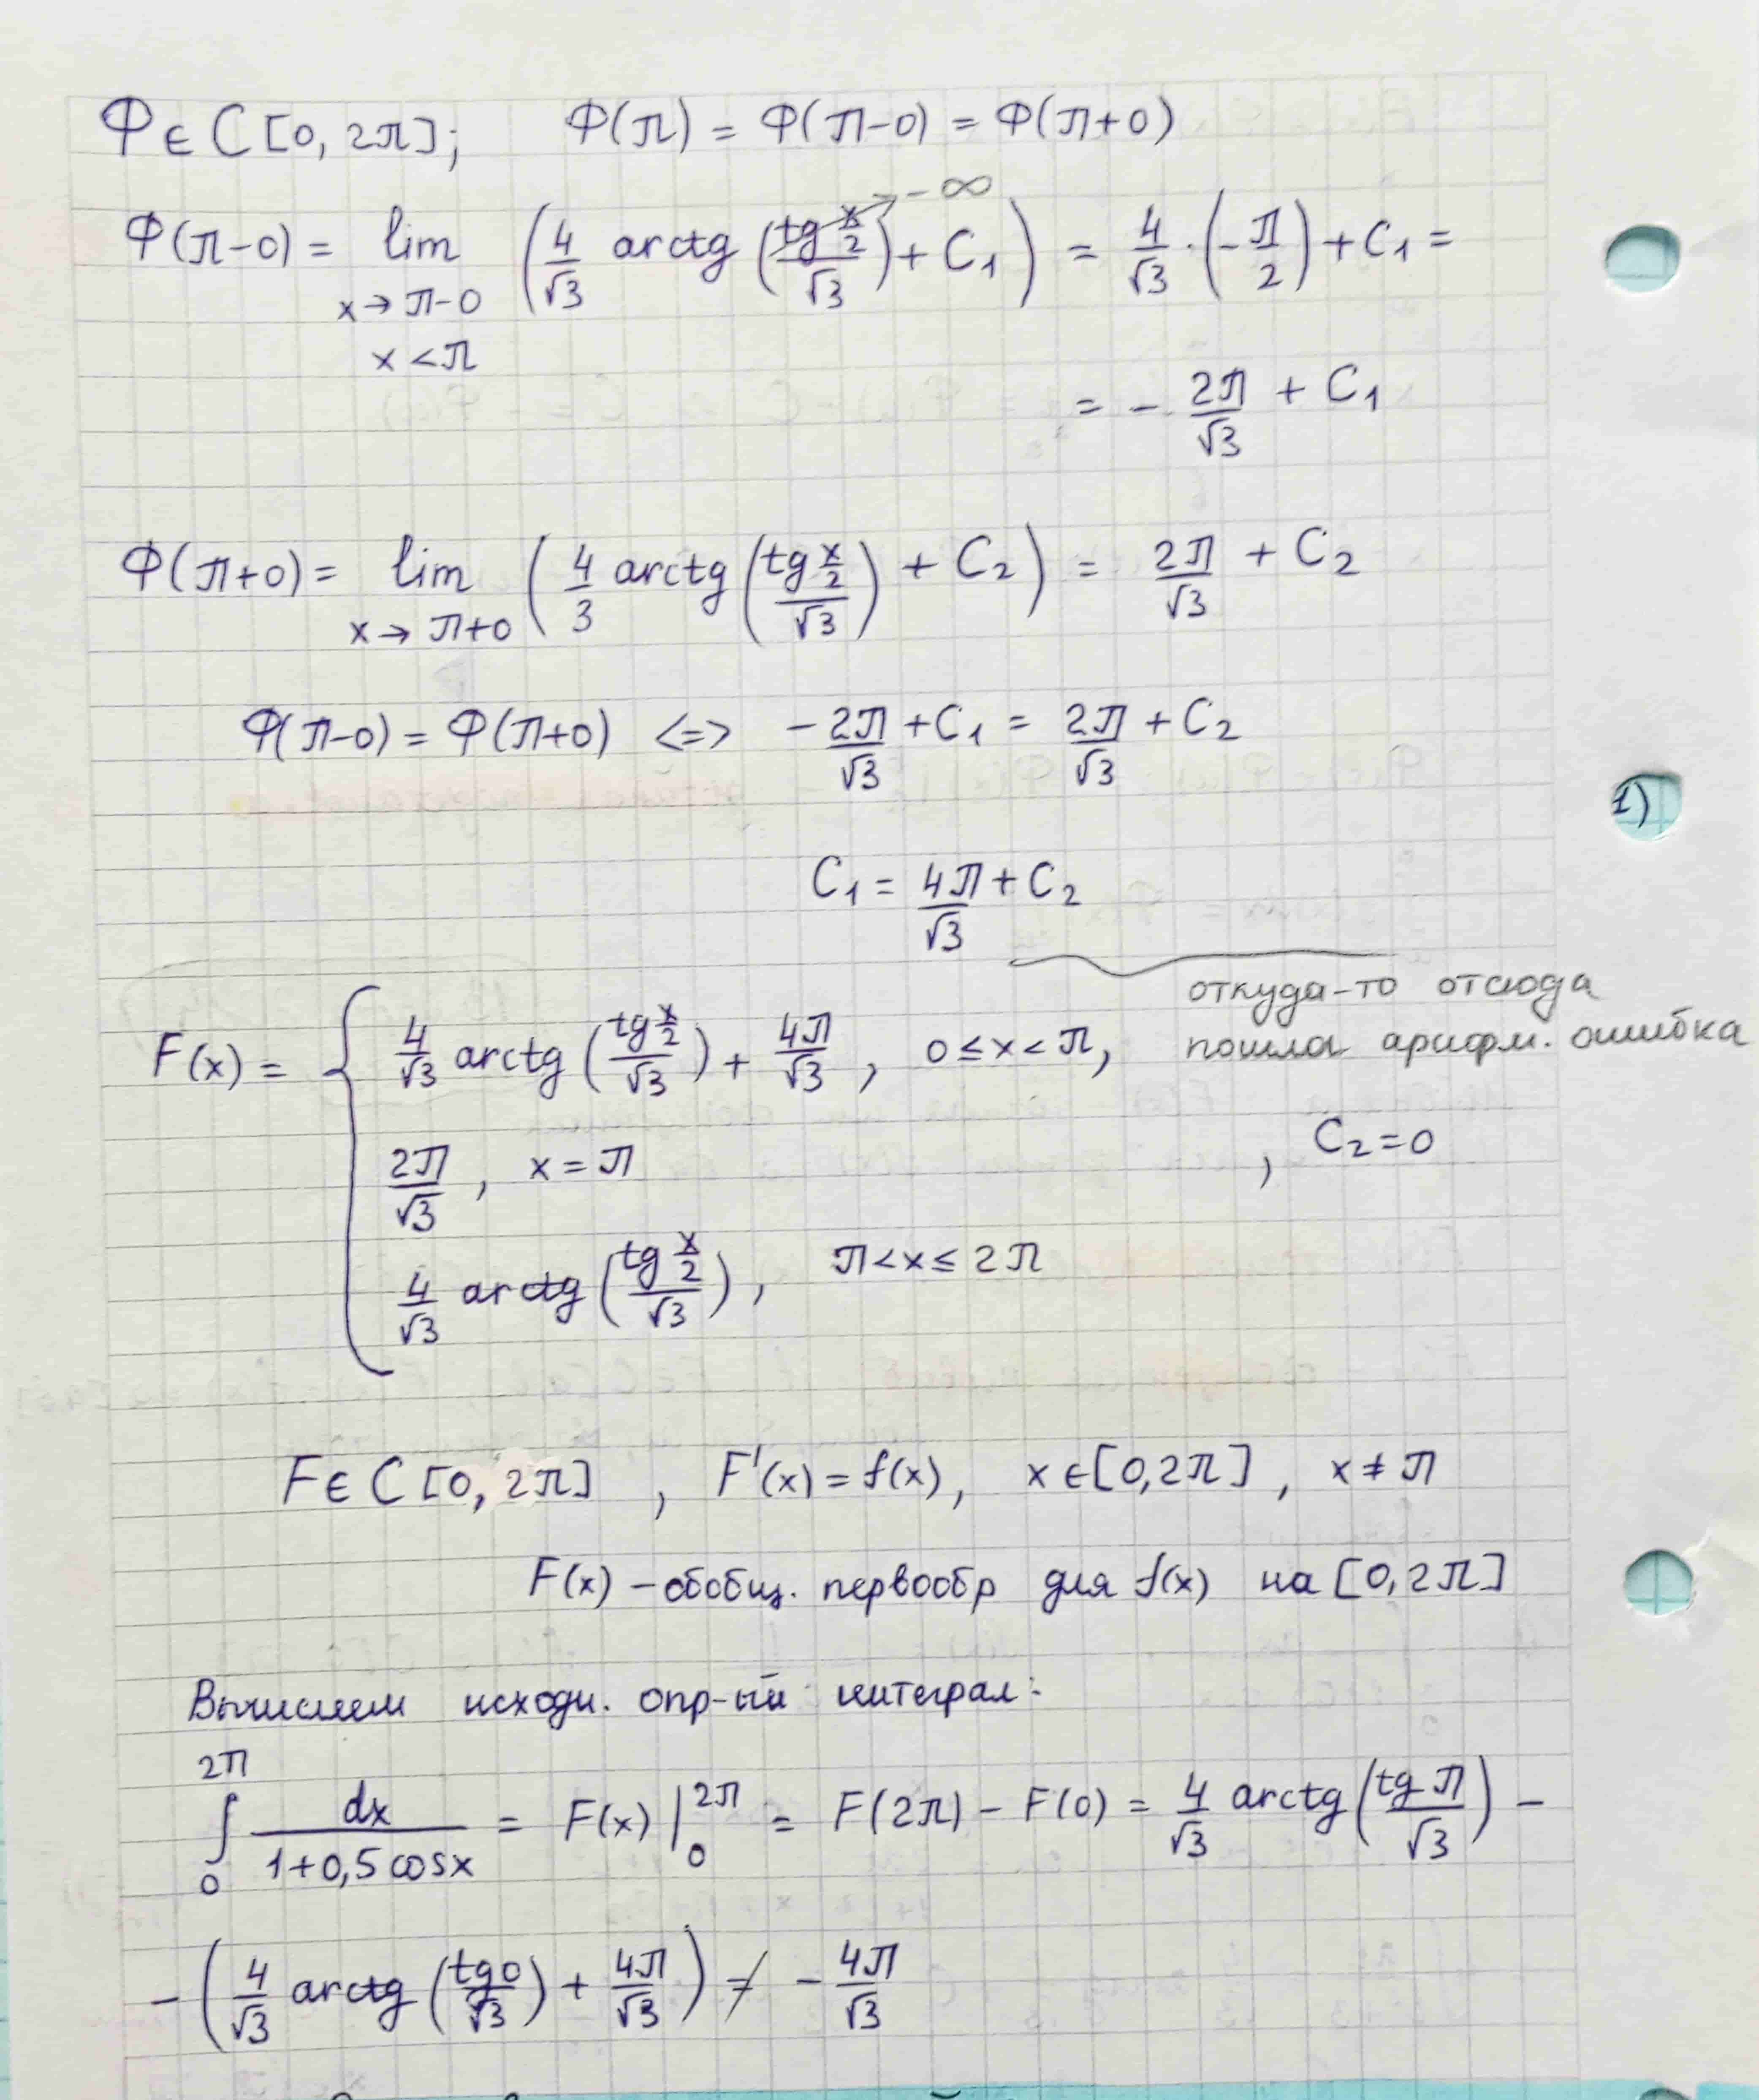 Ф ∈ C [0, 2π]; Ф(π) = Ф(π-0) = Ф(π+0)
Ф(π-0) = lim_{x→π-0, x<π} (4/√3 arctg (tg x/2 / √3) + C₁) = 4/√3 · (-π/2) + C₁ =
→ -∞
= - 2π/√3 + C₁
Ф(π+0) = lim_{x→π+0} (4/3 arctg (tg x/2 / √3) + C₂) = 2π/√3 + C₂
Ф(π-0) = Ф(π+0) <=> - 2π/√3 + C₁ = 2π/√3 + C₂
1)
C₁ = 4π/√3 + C₂
откуда-то отсюда
пошла арифм. ошибка
F(x) = { 4/√3 arctg (tg x/2 / √3) + 4π/√3 , 0 ≤ x < π,
2π/√3 , x = π , C₂ = 0
4/√3 arctg (tg x/2 / √3) , π < x ≤ 2π
F ∈ C [0, 2π] , F'(x) = f(x), x ∈ [0, 2π] , x ≠ π
F(x) – обобщ. первообр для f(x) на [0, 2π]
Вычислем исходн. опр-ый интеграл:
∫₀^{2π} dx / (1+0,5 cosx) = F(x) |₀^{2π} = F(2π) - F(0) = 4/√3 arctg (tg π / √3) -
- (4/√3 arctg (tg 0 / √3) + 4π/√3) ≠ - 4π/√3